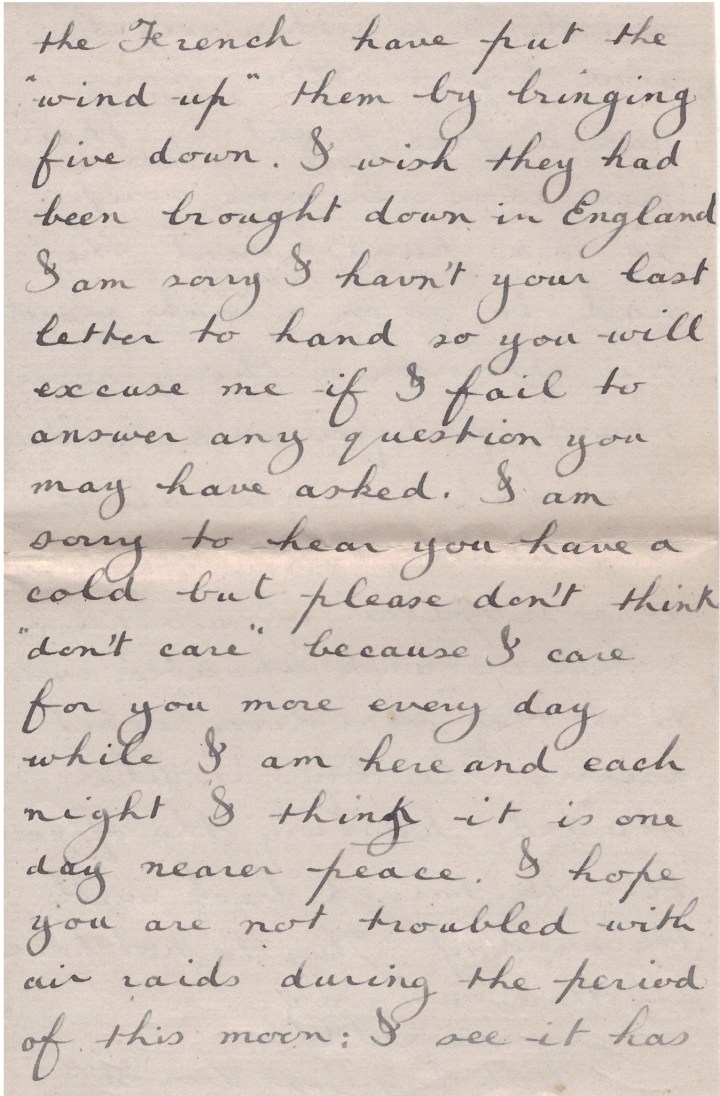 the French have put the
"wind up" them by bringing
five down. I wish they had
been brought down in England
I am sorry I havn't your last
letter to hand so you will
excuse me if I fail to
answer any question you
may have asked. I am
sorry to hear you have a
cold but please don't think
"don't care" because I care
for you more every day
while I am here and each
night I think it is one
day nearer peace. I hope
you are not troubled with
air raids during the period
of this moon: I see it has